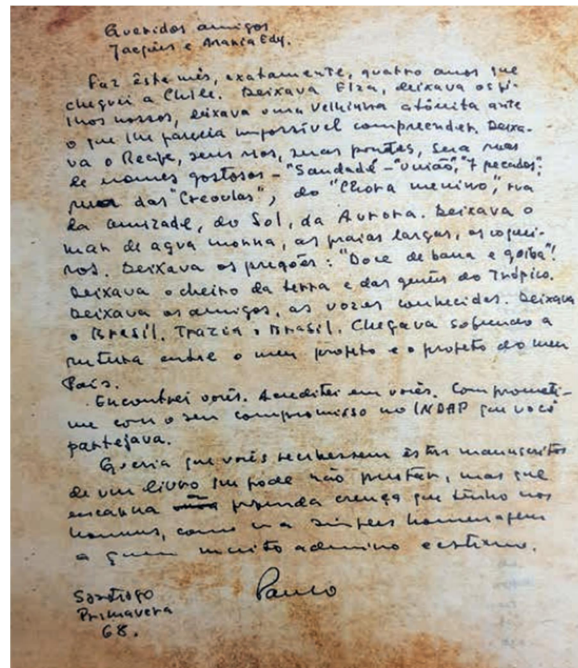 Queridos amigos
Jacques e Maria Edy.
Faz êste mês, exatamente, quatro anos que
cheguei a Chile. Deixava Elza, deixava os fi-
lhos nossos, deixava uma velhinha atônita ante
o que lhe parecia impossível compreender. Deixa-
va o Recife, seus rios, suas pontes, suas ruas
de nomes gostosos - "Saudade - "União", "7 pecados",
rua das "Creoulas", do "Chora menino", rua
da amizade, do Sol, da Aurora. Deixava o
mar de agua morna, as praias largas, os coquei-
ros. Deixava os pregões: "Doce de bana e goiba"!
Deixava o cheiro da terra e das gentes do Trópico.
Deixava os amigos, as vozes conhecidas. Deixava
o Brasil. Trazia o Brasil. Chegava sofrendo a
ruptura entre o meu projeto e o projeto do meu
País.
Encontrei vocês. Acreditei em vocês. Comprometi-
me com o seu compromisso no INDAP que você
partejava.
Queria que vocês recebessem êstes manuscritos
de um livro que pode não prestar, mas que
encarna a profunda crença que tenho nos
homens, como uma simples homenagem
a quem muito admiro e estimo.
Paulo
Santiago
Primavera
68.